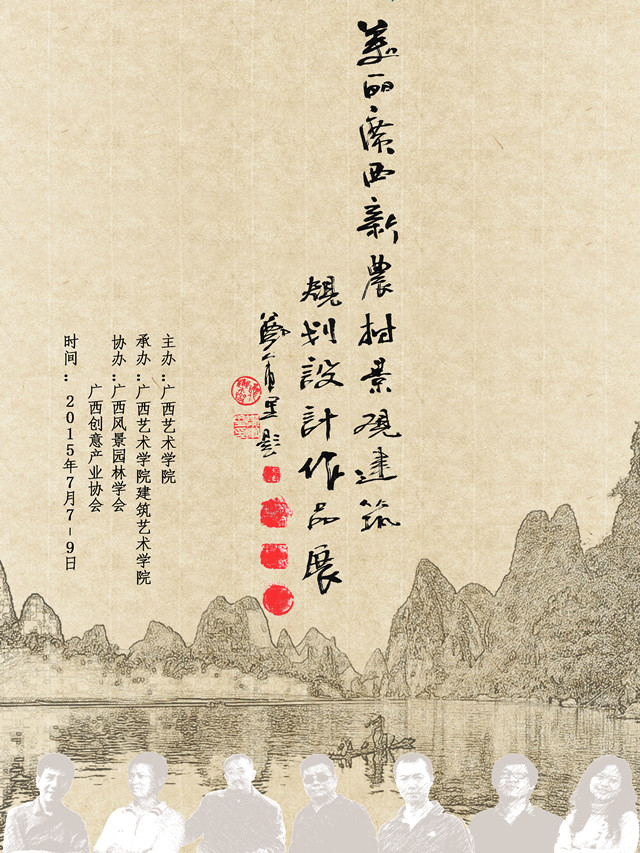 美丽廣西新農村景观建筑
規划設計作品展
主办：广西艺术学院
承办：广西艺术学院建筑艺术学院
协办：广西风景园林学会
广西创意产业协会
时间：2015年7月7-9日